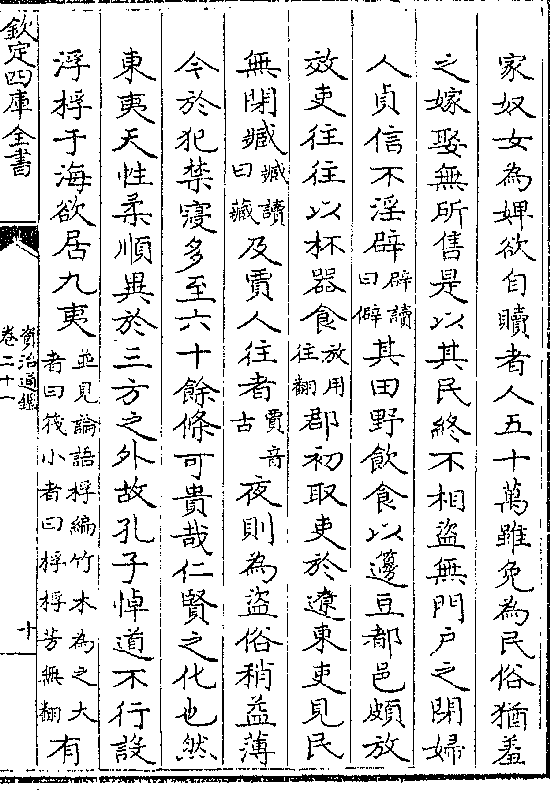 家奴女為婢欲自贖者人五十萬雖免為民俗猶羞
之嫁娶無所售是以其民終不相盜無門户之閉婦
人貞信不淫辟辟讀曰僻其田野飲食以邊豆都邑頗放
效吏往往以杯器食放用往翻郡初取吏於遼東吏見民
無閉臧臧讀曰藏及賈人往者賈音古夜則為盜俗稍益薄
今於犯禁寖多至六十餘條可貴哉仁賢之化也然
東夷天性柔順異於三方之外故孔子悼道不行設
浮桴于海欲居九夷並見論語桴編竹木為之大者曰筏小者曰桴桴芳無翻有
欽定四庫全書
資治通鑑
卷二十一
十